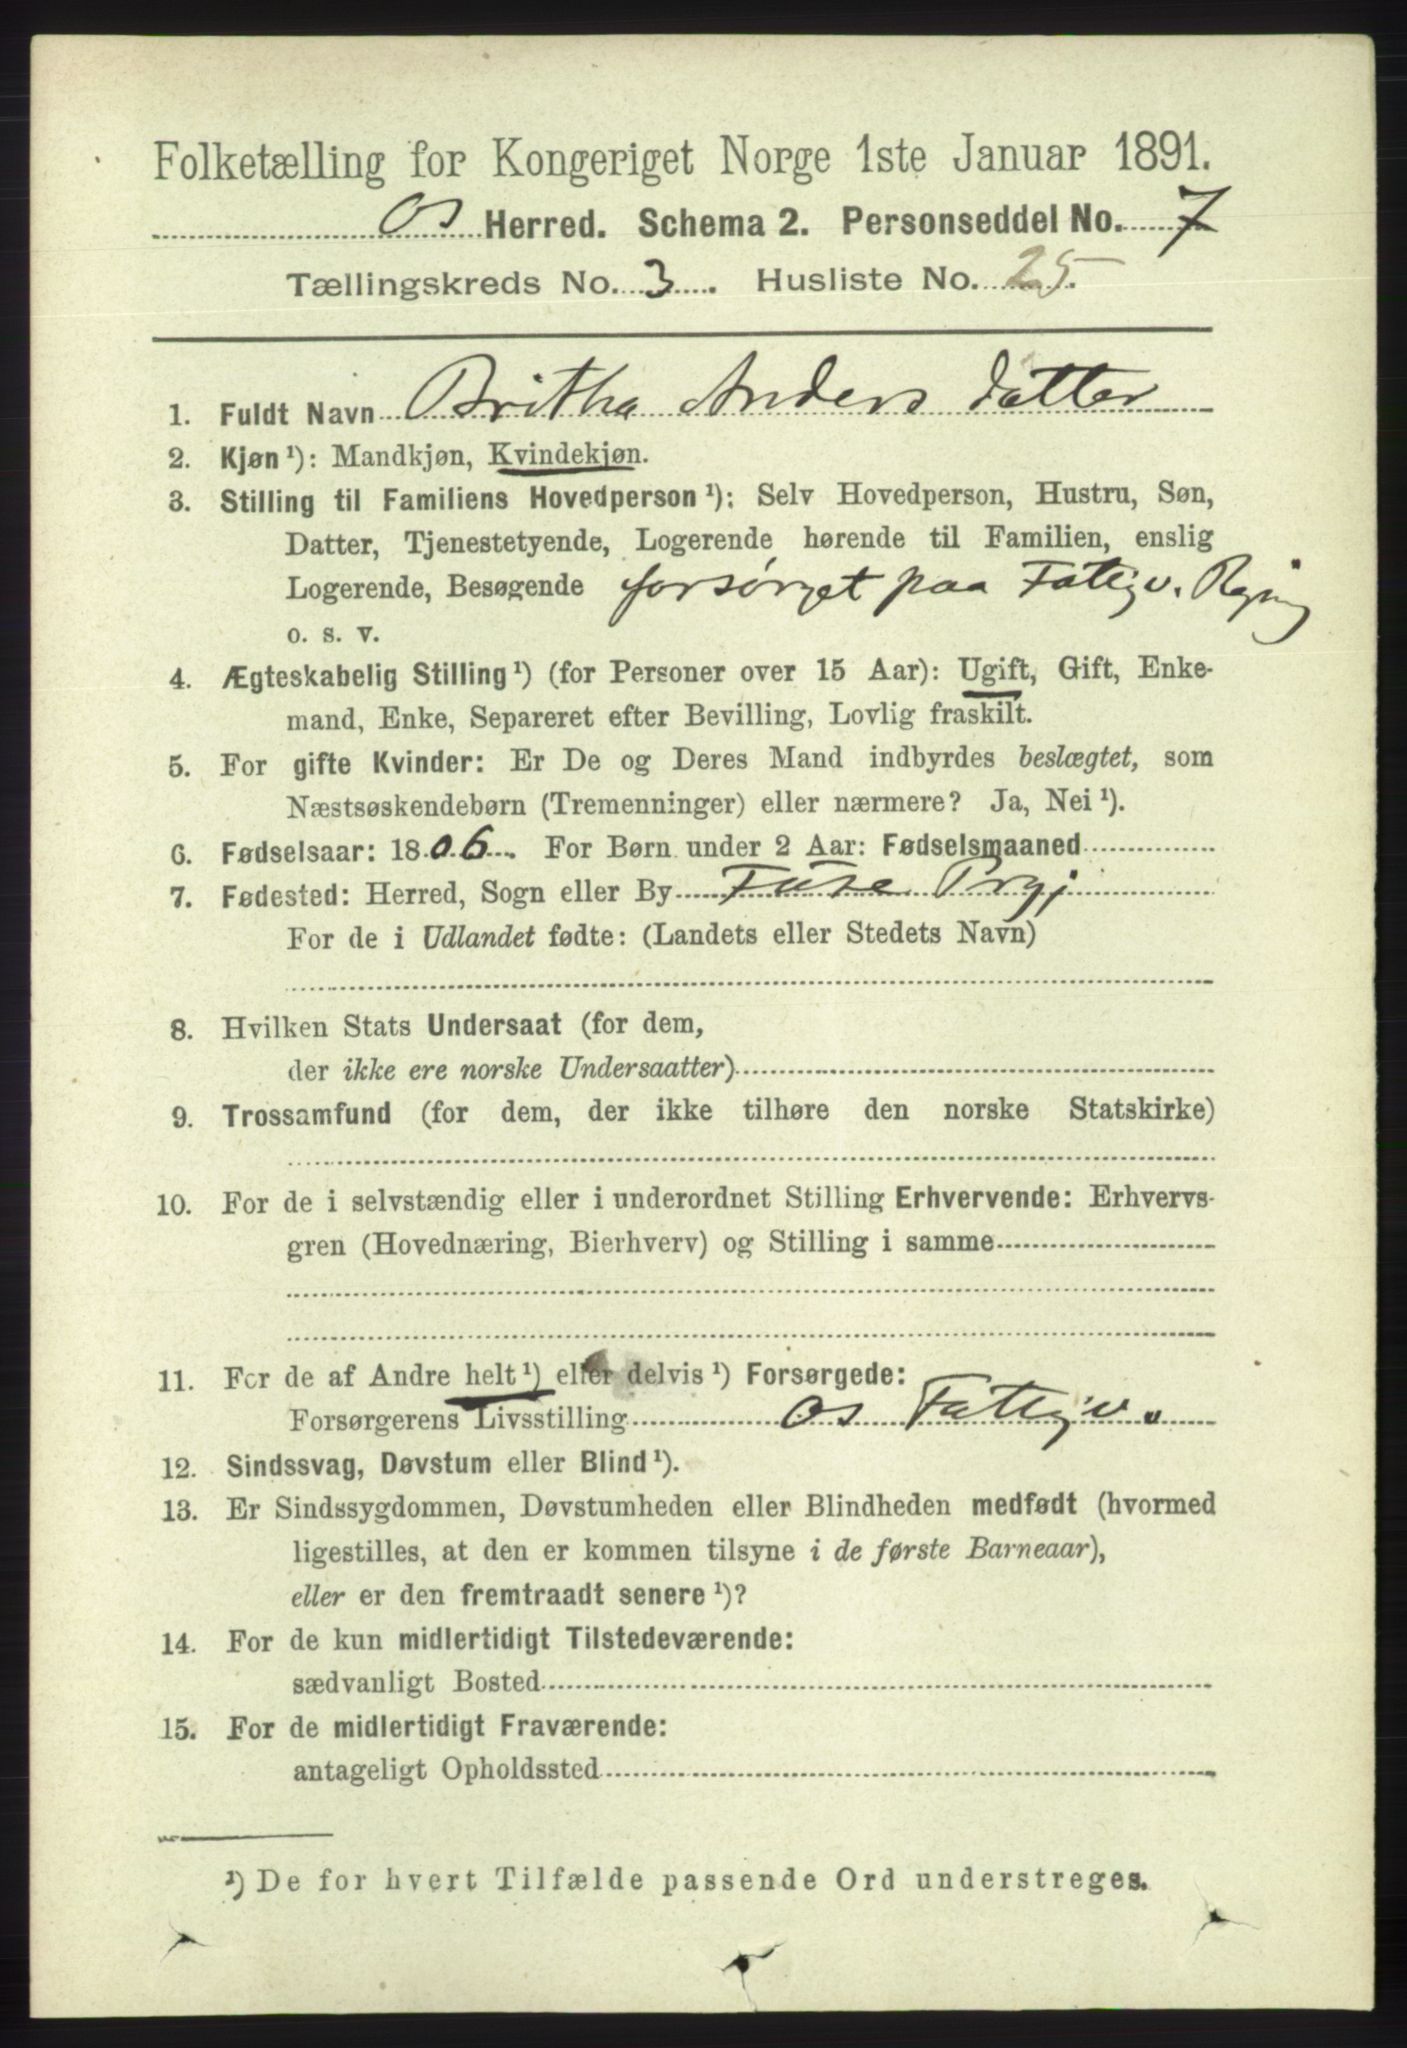 Folketælling for Kongeriget Norge 1ste Januar 1891.
Os Herred. Schema 2. Personseddel No. 7
Tællingskreds No. 3. Husliste No. 25.
1. Fuldt Navn Britha Anders datter
2. Kjøn¹): Mandkjøn, Kvindekjøn.
3. Stilling til Familiens Hovedperson¹): Selv Hovedperson, Hustru, Søn,
Datter, Tjenestetyende, Logerende hørende til Familien, enslig
Logerende, Besøgende forsørget paa Fattigv. Regning
o. s. v.
4. Ægteskabelig Stilling¹) (for Personer over 15 Aar): Ugift, Gift, Enke-
mand, Enke, Separeret efter Bevilling, Lovlig fraskilt.
5. For gifte Kvinder: Er De og Deres Mand indbyrdes beslægtet, som
Næstsøskendebørn (Tremenninger) eller nærmere? Ja, Nei¹).
6. Fødselsaar: 1806. For Børn under 2 Aar: Fødselsmaaned
7. Fødested: Herred, Sogn eller By Fuse Prgj
For de i Udlandet fødte: (Landets eller Stedets Navn)
8. Hvilken Stats Undersaat (for dem,
der ikke ere norske Undersaatter)
9. Trossamfund (for dem, der ikke tilhøre den norske Statskirke)
10. For de i selvstændig eller i underordnet Stilling Erhvervende: Erhvervs-
gren (Hovednæring, Bierhverv) og Stilling i samme
11. For de af Andre helt¹) eller delvis¹) Forsørgede:
Forsørgerens Livsstilling Os Fattigv.
12. Sindssvag, Døvstum eller Blind¹).
13. Er Sindssygdommen, Døvstumheden eller Blindheden medfødt (hvormed
ligestilles, at den er kommen tilsyne i de første Barneaar),
eller er den fremtraadt senere¹)?
14. For de kun midlertidigt Tilstedeværende:
sædvanligt Bosted
15. For de midlertidigt Fraværende:
antageligt Opholdssted
¹) De for hvert Tilfælde passende Ord understreges.